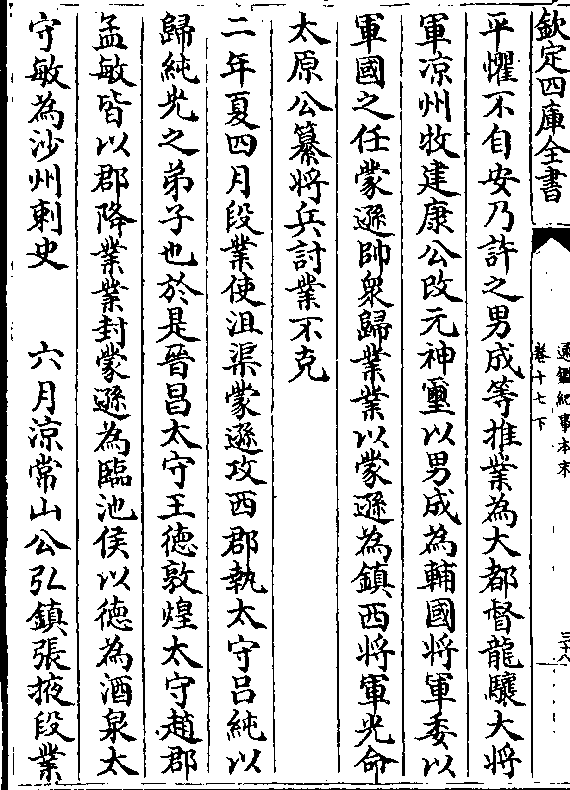 欽定四庫全書
通鑑紀事本末
卷十七下
三十八
平懼不自安乃許之男成等推業為大都督龍驤大將
軍涼州牧建康公改元神璽以男成為輔國將軍委以
軍國之任蒙遜帥衆歸業業以蒙遜為鎮西將軍光命
太原公纂將兵討業不克
二年夏四月段業使沮渠蒙遜攻西郡執太守呂純以
歸純光之弟子也於是晉昌太守王德敦煌太守趙郡
孟敏皆以郡降業業封蒙遜為臨池侯以德為酒泉太
守敏為沙州刺史　六月涼常山公弘鎮張掖段業